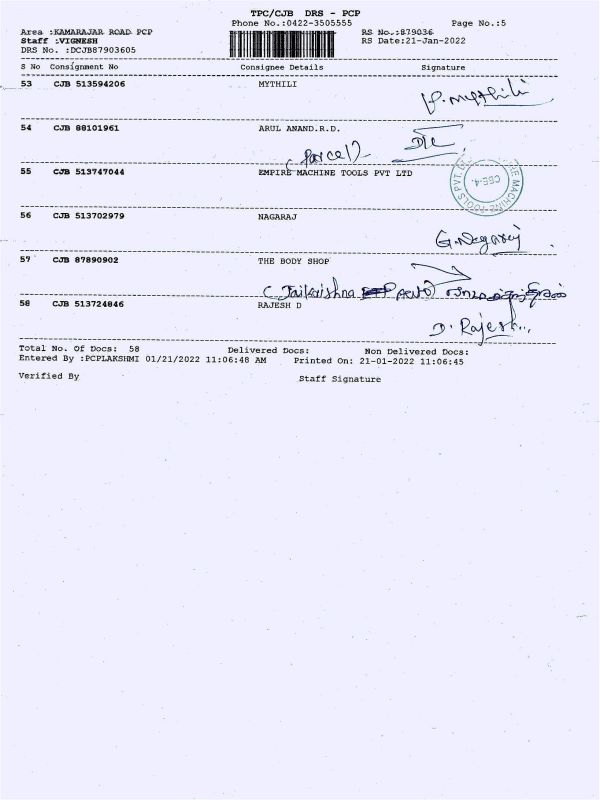 TPC/CJB DRS - PCP
Phone No.:0422-3505555 Page No.:5
Area :KAMARAJAR ROAD PCP RS No.:879036
Staff :VIGNESH RS Date:21-Jan-2022
DRS No. :DCJB87903605
S No Consignment No Consignee Details Signature
53 CJB 513594206 MYTHILI
P. Mythili
54 CJB 88101961 ARUL ANAND.R.D.
(Parcel)
55 CJB 513747044 EMPIRE MACHINE TOOLS PVT LTD
MACHINE TOOLS PVT. CBE-4.
56 CJB 513702979 NAGARAJ
G. Nagaraj
57 CJB 87890902 THE BODY SHOP
C Jaikrishna
58 CJB 513724846 RAJESH D
D. Rajesh
Total No. Of Docs: 58 Delivered Docs: Non Delivered Docs:
Entered By :PCPLAKSHMI 01/21/2022 11:06:48 AM Printed On: 21-01-2022 11:06:45
Verified By Staff Signature